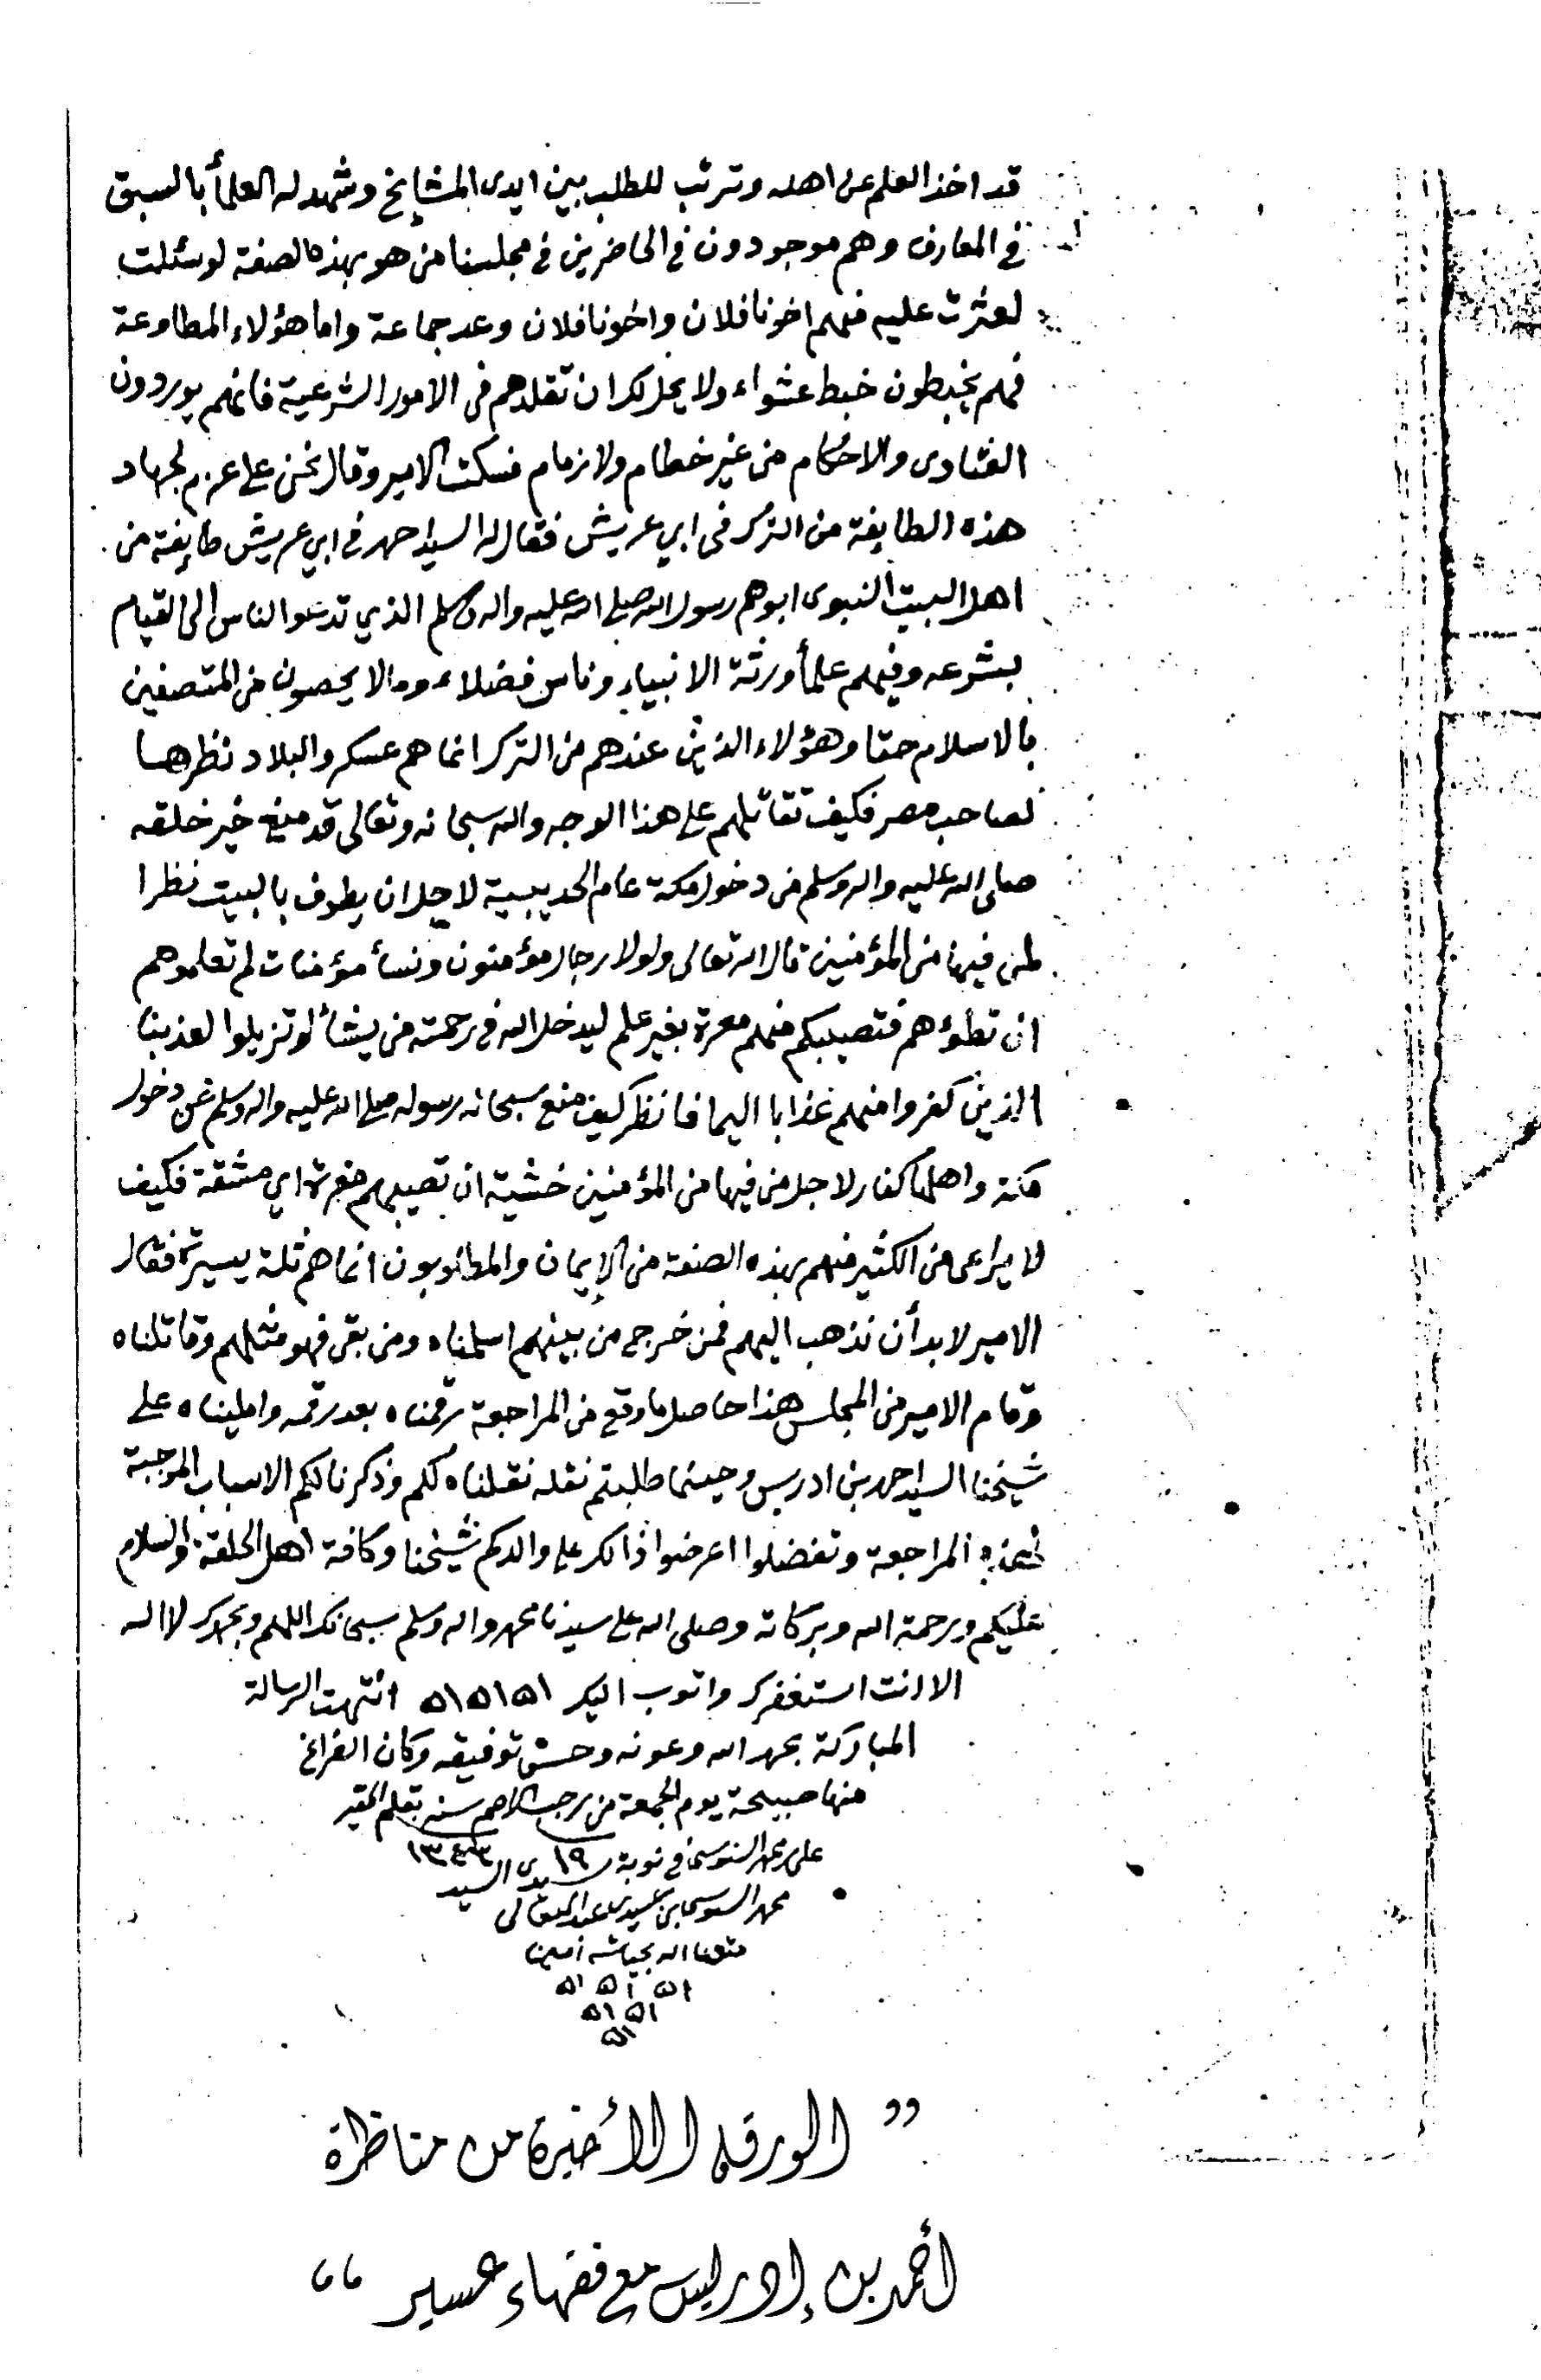 قد اخذ العلم عن اهله وترتب للطلب بين ايدى المشايخ وشهد له العلمأ بالسبق
في المعارف وهم موجودون في الحاضرين في مجلسنا من هو بهذه الصفة لو سئلت
لعثرت عليه فمنهم اخونا فلان واخونا فلان وعد جماعة واما هؤلاء المطاوعة
فهم يخبطون خبط عشواء ولا يحل لك ان تقلدهم في الامور الشرعية فانهم يوردون
الفتاوى والاحكام من غير خطام ولا زمام فسكت الامير وقال نحن على عزم لجهاد
هذه الطايفة من الترك في ابي عريش فقال له السيد احمد في ابي عريش طايفة من
اهل البيت النبوى ابوهم رسول الله صلى الله عليه واله وسلم الذي تدعوا الناس الى القيام
بشرعه وفيهم علمأ ورثة الانبياء وناس فضلاء ومالا يحصون من المتصفين
بالاسلام حقا وهؤلاء الذين عندهم من الترك انما هم عسكر والبلاد نظرها
لصاحب مصر فكيف تقاتلهم على هذا الوجه والله سبحانه وتعالى قد منع خير خلقه
صلى الله عليه واله وسلم من دخول مكة عام الحديبية لاجل ان يطوف بالبيت نظرا
لمن فيها من المؤمنين قال الله تعالى ولولا رجال مؤمنون ونسأ مؤمنات لم تعلموهم
ان تطؤهم فتصيبكم منهم معرة بغير علم ليدخل الله في رحمته من يشأ لو تزيلوا لعذبنا
الذين كفروا منهم عذابا اليما فانظر كيف منع سبحانه رسوله صلى الله عليه واله وسلم عن دخول
مكة واهلها كفار لاجل من فيها من المؤمنين خشية ان تصيبهم معرة اي مشقة فكيف
لا يراعى من الكثير منهم بهذه الصفة من الإيمان والمطلوبون انما هم ثلة يسيرة فقال
الامير لا بد أن نذهب اليهم فمن خرج من بينهم اسلمناه ومن بقى فهو مثلهم وقاتلناه
وقام الامير من المجلس هذا حاصل ما وقع من المراجعة رقمناه بعد رقمه واملیناه على
شيخنا السيد احمد بن ادريس وحيثما طلبتم نقله نقلناه لكم وذكرنا لكم الاسباب الموجبة
لهذه المراجعة وتفضلوا اعرضوا ذالك على والدكم شيخنا وكافة اهل الحلقة والسلام
عليكم ورحمة الله وبركاته وصلى الله على سيدنا محمد واله وسلم سبحانك اللهم وبحمدك لا اله
الا انت استغفرك واتوب اليك اه اه اه انتهت الرسالة
المباركة بحمد الله وعونه وحسن توفيقه وكان الفراغ
منها صبيحة يوم الجمعة من رجب الاصم سنه بقلم الحقير
١٩ ١٣٤٣
على محمد السنوسي في نوبة سيدى السيد
محمد السنوسي ابن سيدى عبد المتعالى
متعنا الله بحياته امين
اه اه اه
اه اه
اه
" الورقة الأخيرة من مناظرة
أحمد بن إدريس مع فقهاء عسير "